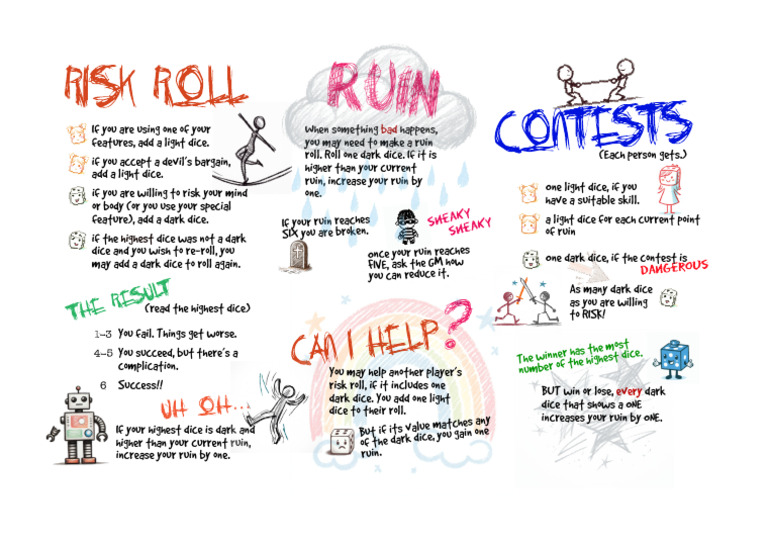 RISK ROLL
If you are using one of your
features, add a light dice.
if you accept a devil's bargain,
add a light dice.
if you are willing to risk your mind
or body (or you use your special
feature), add a dark dice.
if the highest dice was not a dark
dice and you wish to re-roll, you
may add a dark dice to roll again.
THE RESULT
(read the highest dice)
1-3 You fail. Things get worse.
4-5 You succeed, but there's a
complication.
6 Success!!
UH OH...
If your highest dice is dark and
higher than your current ruin,
increase your ruin by one.
RUIN
When something bad happens,
you may need to make a ruin
roll. Roll one dark dice. If it is
higher than your current
ruin, increase your ruin by
one.
If your ruin reaches
SIX you are broken.
SNEAKY
SNEAKY
once your ruin reaches
FIVE, ask the GM how
you can reduce it.
CAN I HELP?
You may help another player's
risk roll, if it includes one
dark dice. You add one light
dice to their roll.
But if its value matches any
of the dark dice, you gain one
ruin.
CONTESTS
(Each person gets..)
one light dice, if you
have a suitable skill.
a light dice for each current point
of ruin
one dark dice, if the contest is
DANGEROUS
As many dark dice
as you are willing
to RISK!
The winner has the most
number of the highest dice.
BUT win or lose, every dark
dice that shows a ONE
increases your ruin by ONE.